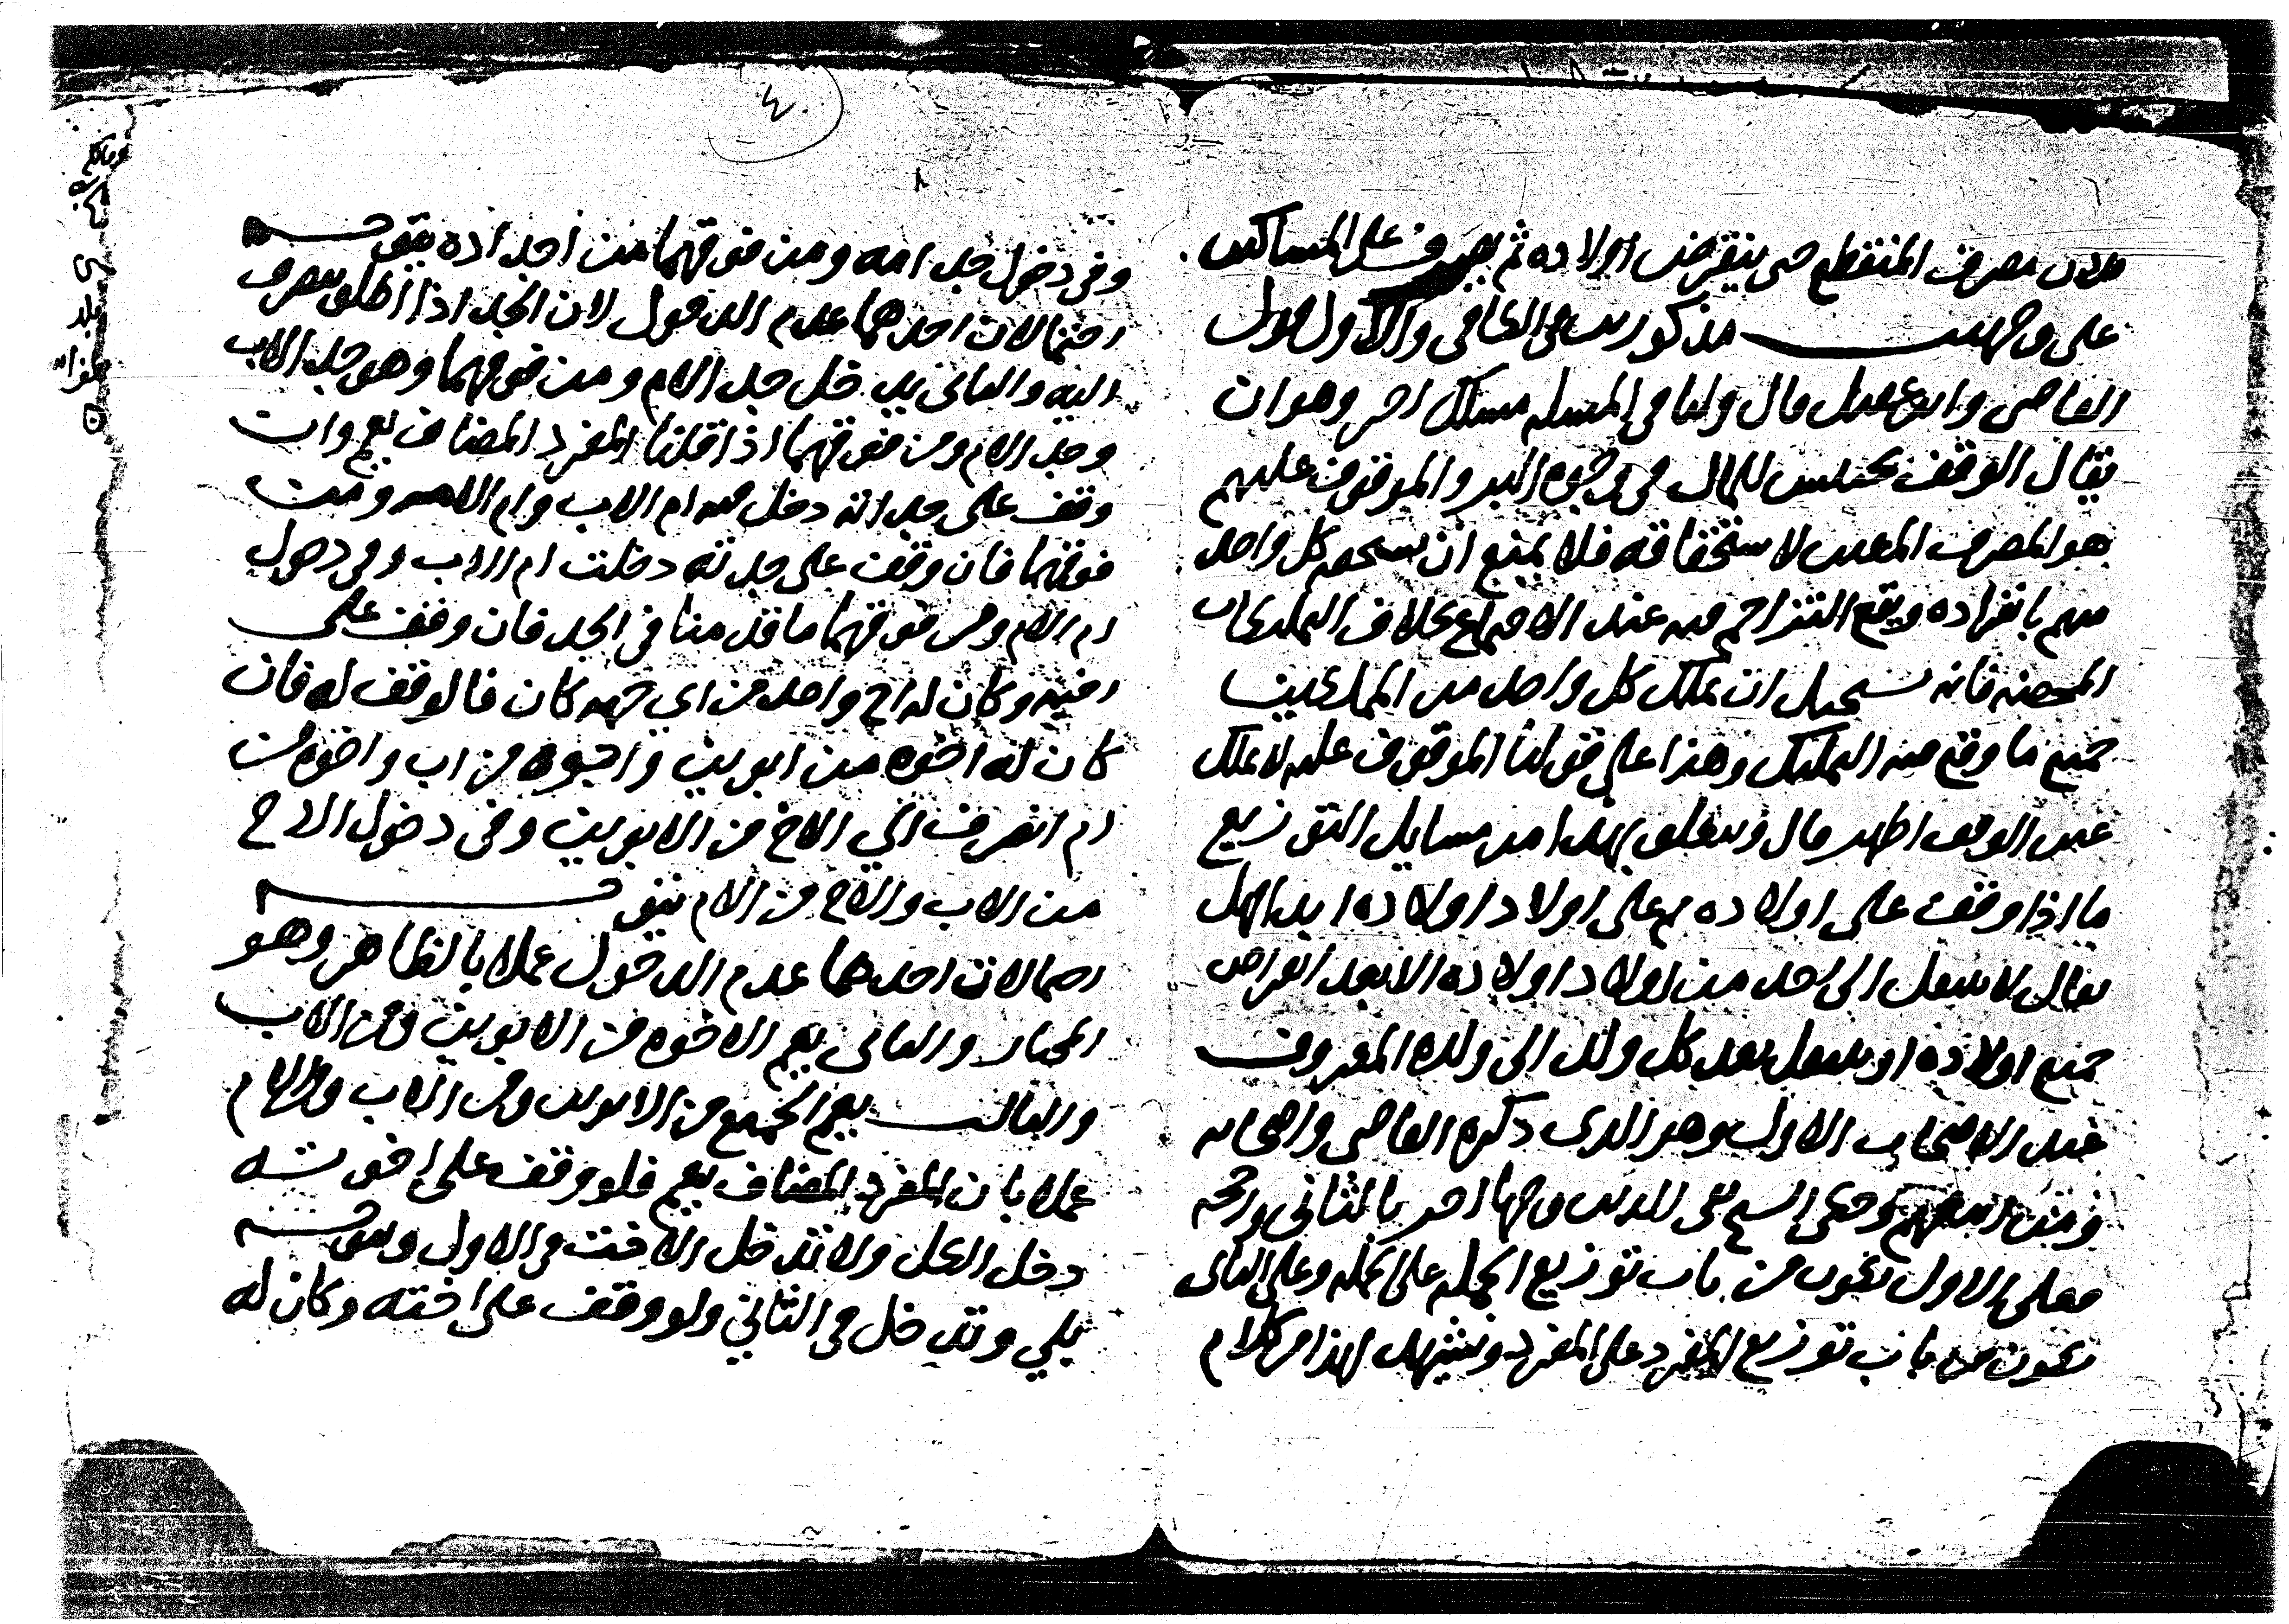 مصرف المنقطع حتى ينقرض اولاده ثم يصرف على المساكين
على وجهين مذكورين في الكافي والاول قول
القاضي وابن عقيل قال ولنا في المسله مسلك اخر وهو ان
يقال الوقف تحبيس للمال في وجوه البر والموقوف عليهم
هو المصرف المعين لاستحقاقه فلا يمتنع ان يستحقه كل واحد
منهم بانفراده ويقع التزاحم فيه عند الاجتماع بخلاف التمليكات
المحضه فانه يستحيل ان يملك كل واحد من المملكين
جميع ما وقع فيه التمليك وهذا على قولنا الموقوف عليه لا يملك
عين الوقف اظهر قال ويتعلق بهذا من مسايل التوزيع
ما اذا وقف على اولاده ثم على اولاد اولاده ابدا هل
يقال لا ينتقل الى احد من اولاد اولاده الا بعد انقراض
جميع اولاده او ينتقل بعد كل ولد الى ولده المعروف
عند الاصحاب الاول وهو الذي ذكره القاضي واصحابه
ومن اتبعهم وحكى الشيخ تقي الدين وجها اخر بالثاني ورجحه
فعلى الاول يكون من باب توزيع الجمله على الجمله وعلى الثاني
يكون من باب توزيع المفرد على المفرد ويشهد لهذا من كلام
٤٠
وفي دخول جد امه ومن فوقهما من اجداده
احتمالات احدهما عدم الدخول لان الجد اذا اطلق يصرف
اليه والثاني يدخل جد الام ومن فوقهما وهو جد الاب
وجد الام ومن فوقهما اذا قلنا المفرد المضاف يعم وان
وقف على جداته دخل فيه ام الاب وام الام ومن
فوقهما فان وقف على جدته دخلت ام الاب وفي دخول
ام الام ومن فوقهما ما قدمنا في الجد فان وقف على
اخيه وكان له اخ واحد من اي جهه كان فالوقف له فان
كان له اخوه من ابوين واخوه من اب واخوه من
ام انصرف الى الاخ من الابوين وفي دخول الاخ
من الاب والاخ من الام
احتمالات احدهما عدم الدخول عملا بالظاهر وهو
المختار والثاني يعم الاخوه من الابوين ومن الاب
والثالث يعم الجميع من الابوين ومن الاب والام
عملا بان المفرد المضاف يعم فلو وقف على اخوته
دخل الكل ولا تدخل الاخت في الاول
بلي وتدخل في الثاني ولو وقف على اخته وكان له